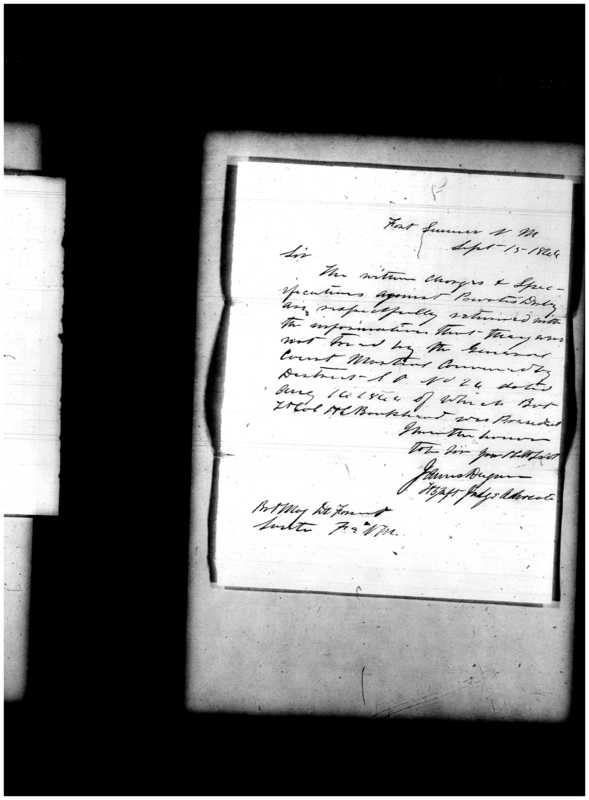 Fort Sumner N M
Sept 15 1866
Sir
The within Charges & Spec-
ifications against Private
are respectfully returned with
the information that they was
not tried by the General
Court Martial Convened by
District S O No 26 dated
Aug 16 1866 of which Bvt
Lt Col H C Bankhead was President
I have the honor
to be Sir your Obt Svt
James
Judge Advocate
Bvt Maj De Forrest
Santa Fe N M.